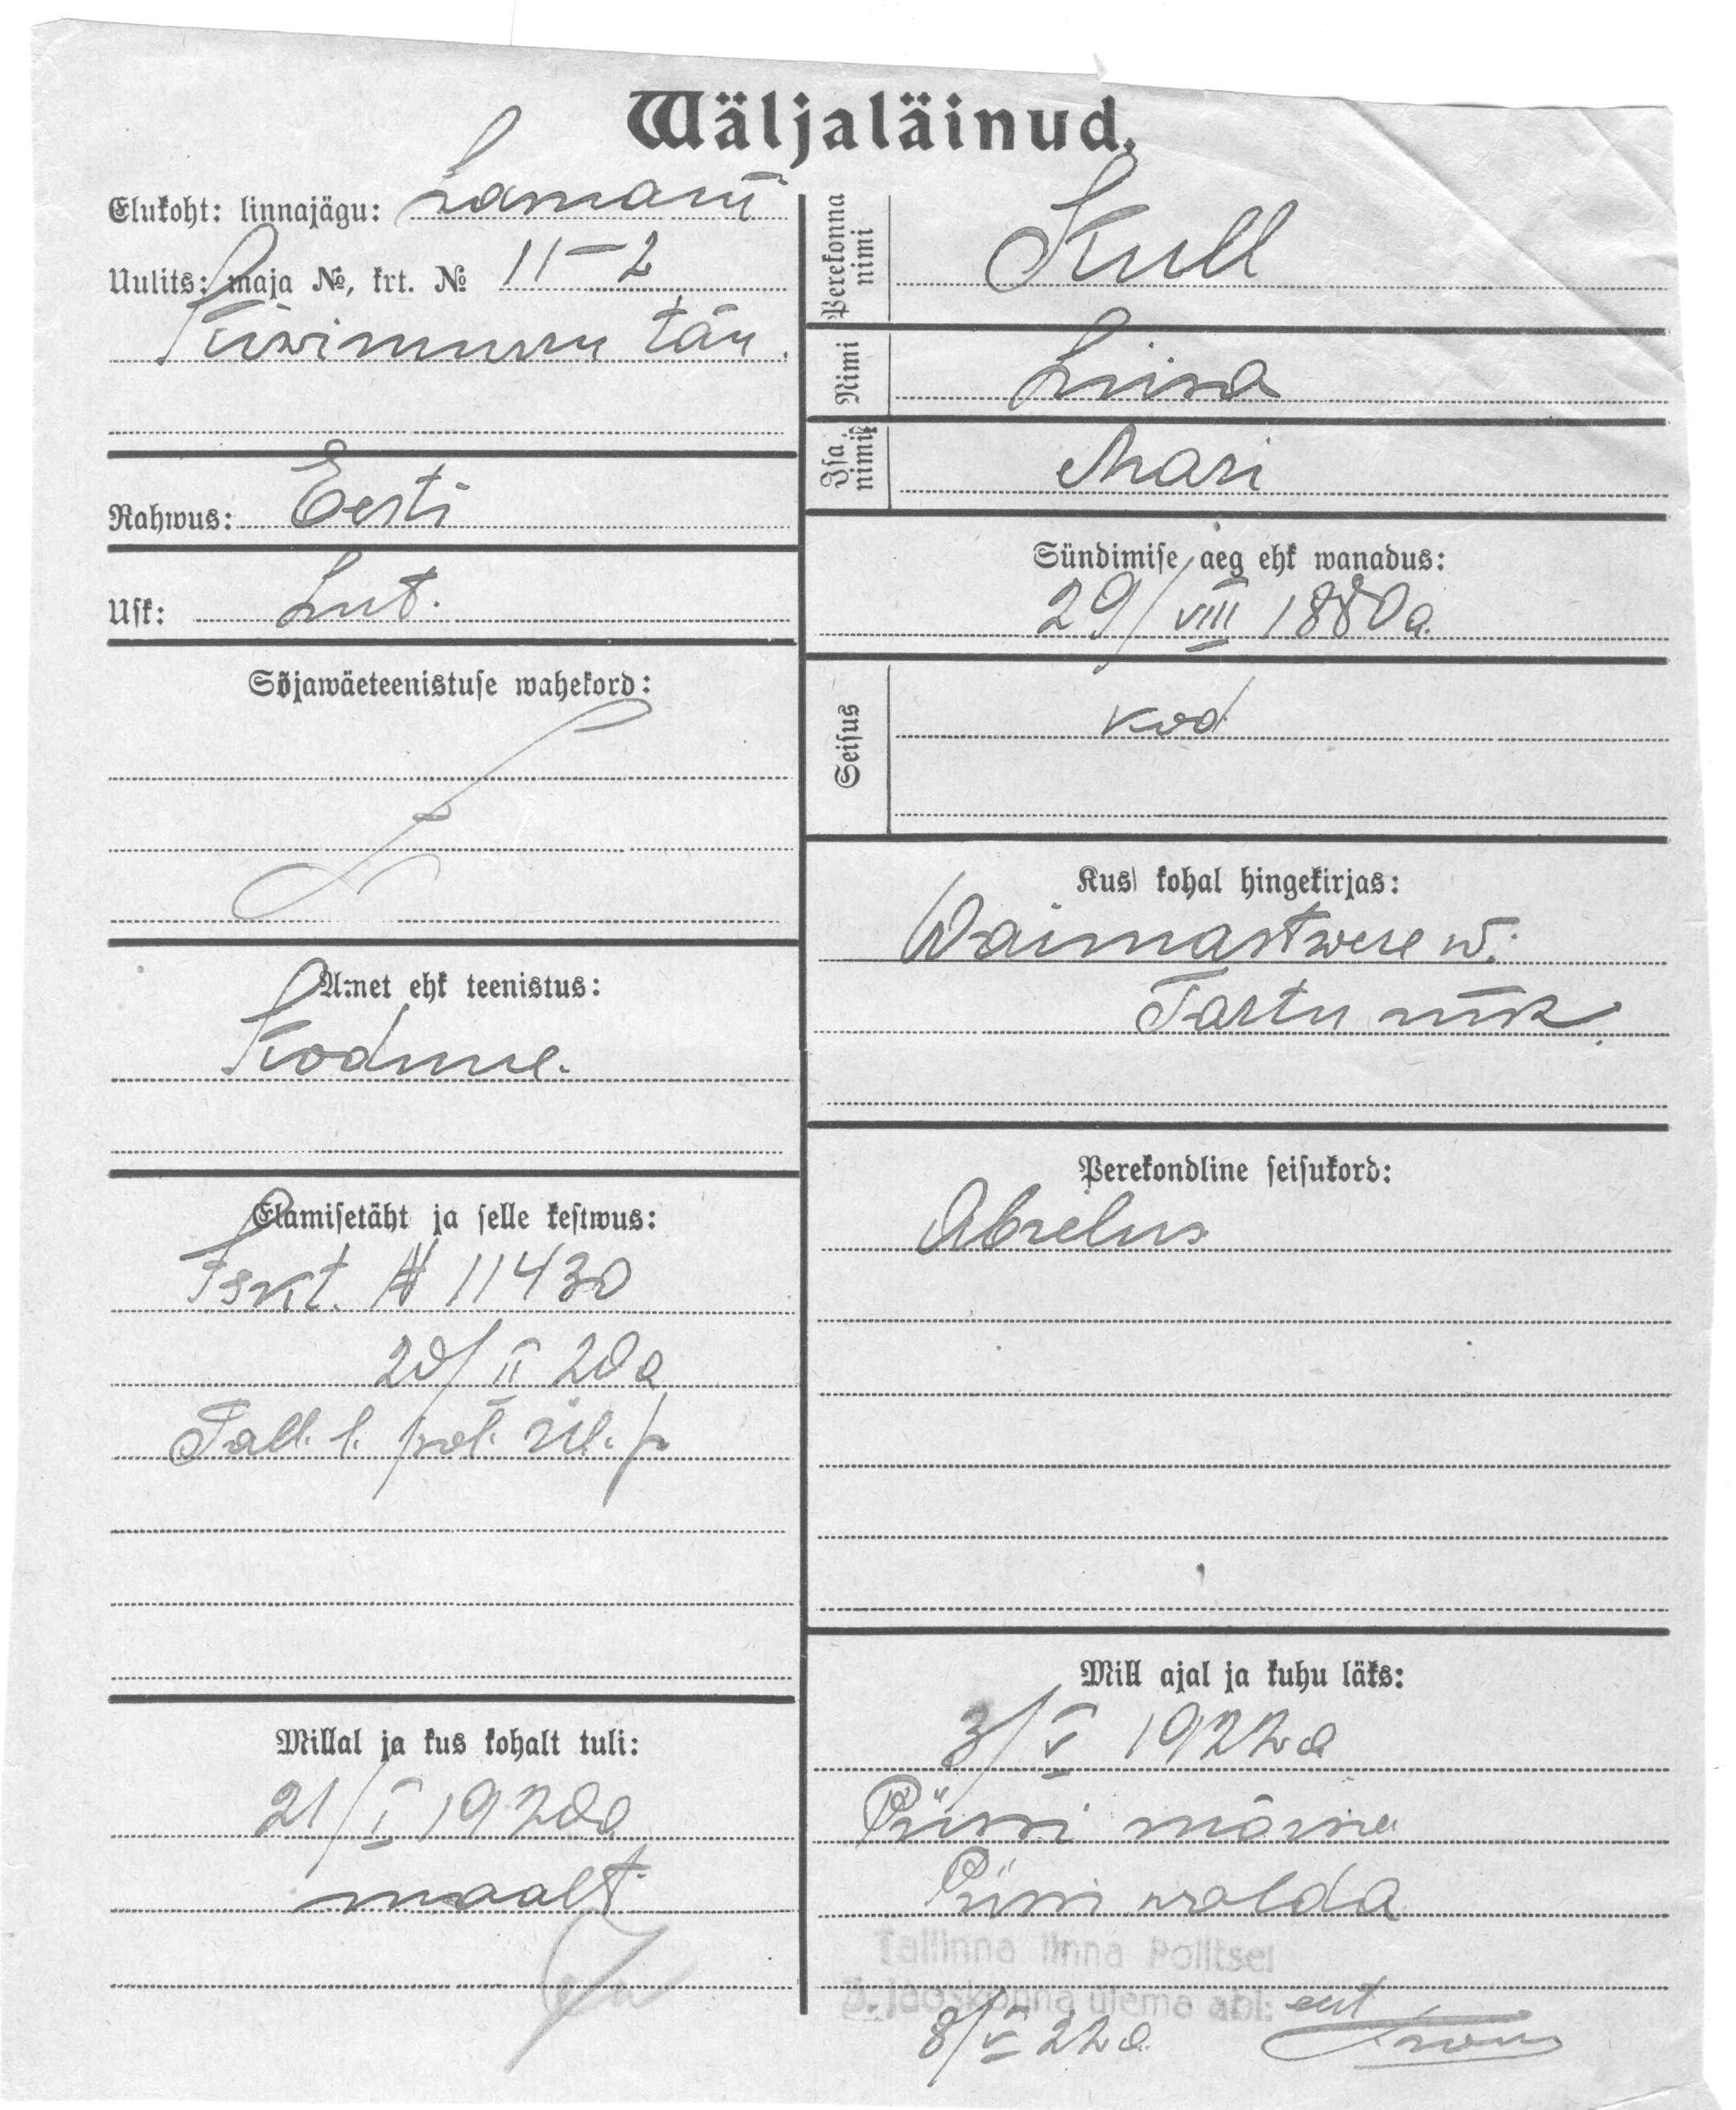 Wäljaläinud.
Elukoht: linnajägu: Lasnamä
Uulits: maja №, krt. № 11-2
Kiwimurru tän.
Rahwus: Eesti
Usk: Lut.
Sõjawäeteenistuse wahekord:
Amet ehk teenistus:
Kodune.
Elamisetäht ja selle kestwus:
Iskt. № 11430
20/II 20a
Tall. l. pol. ül. p
Millal ja kus kohalt tuli:
21/I 1920a
maalt
Perekonna nimi
Kull
Nimi
Liisa
Isa nimi
Mari
Sündimise aeg ehk wanadus:
29/VIII 1880a.
Seisus
kod
Kus kohal hingekirjas:
Waimastwere w.
Tartu
Perekondline seisukord:
Abielus
Mill ajal ja kuhu läks:
3/V 1922a
Püssi mõisa
Püssi walda
Tallinna linna Politsei
3. jaoskonna ülema abi:
8/V 22a.